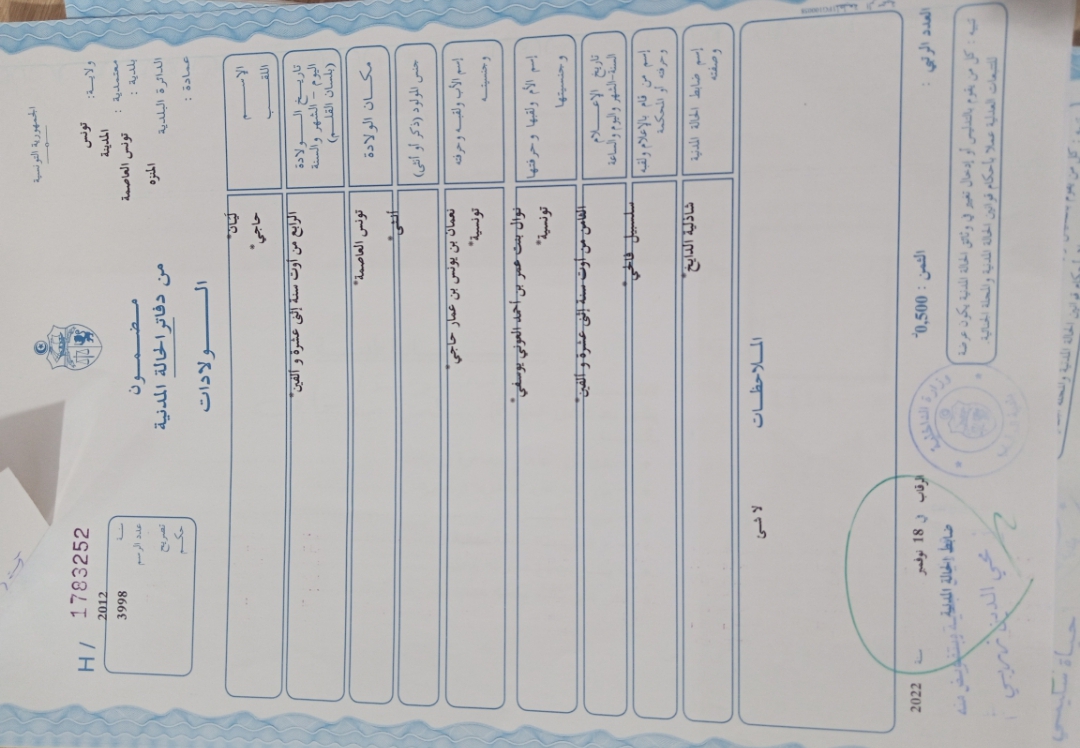 الجمهورية التونسية
ولاية: تونس
معتمدية : المدينة
بلدية : تونس العاصمة
الدائرة البلدية المنزه
عمادة :
مضمون
من دفاتر الحالة المدنية
الولادات
H / 1783252
سنة 2012
عدد الرسم 3998
تصريح
حكم
الاسم لَيَان*
اللقب حاجي*
تاريخ الولادة
اليوم - الشهر والسنة
(بلسان القلم)
الرابع من أوت سنة إثنى عشرة و ألفين*
مكان الولادة تونس العاصمة*
جنس المولود (ذكر أو أنثى) أنثى*
إسم الأب ولقبه وحرفته نعمان بن يونس بن عمار حاجي*
وجنسيته تونسية*
إسم الأم ولقبها وحرفتها نوال بنت عمر بن أحمد العوني يوسفي*
وجنسيتها تونسية*
تاريخ الإعلام
السنة-الشهر واليوم والساعة
الثامن من أوت سنة إثنى عشرة و ألفين*
إسم من قام بالإعلام ولقبه
وحرفته أو المحكمة
سلسبيل فالحي*
إسم ضابط الحالة المدنية
وصفته
شاذلية الدايخ*
الملاحظات
لا شئ
العدد الرتبي :
الثمن : 0,500د
تنبيه : كل من يقوم بالتدليس أو إدخال تغيير في وثائق الحالة المدنية يكون عرضة
للتتبعات العدلية عملا بأحكام قوانين الحالة المدنية والمجلة الجنائية
وزارة الداخلية
الرقاب في 18 نوفمبر سنة 2022
ضابط الحالة المدنية
محي الدين